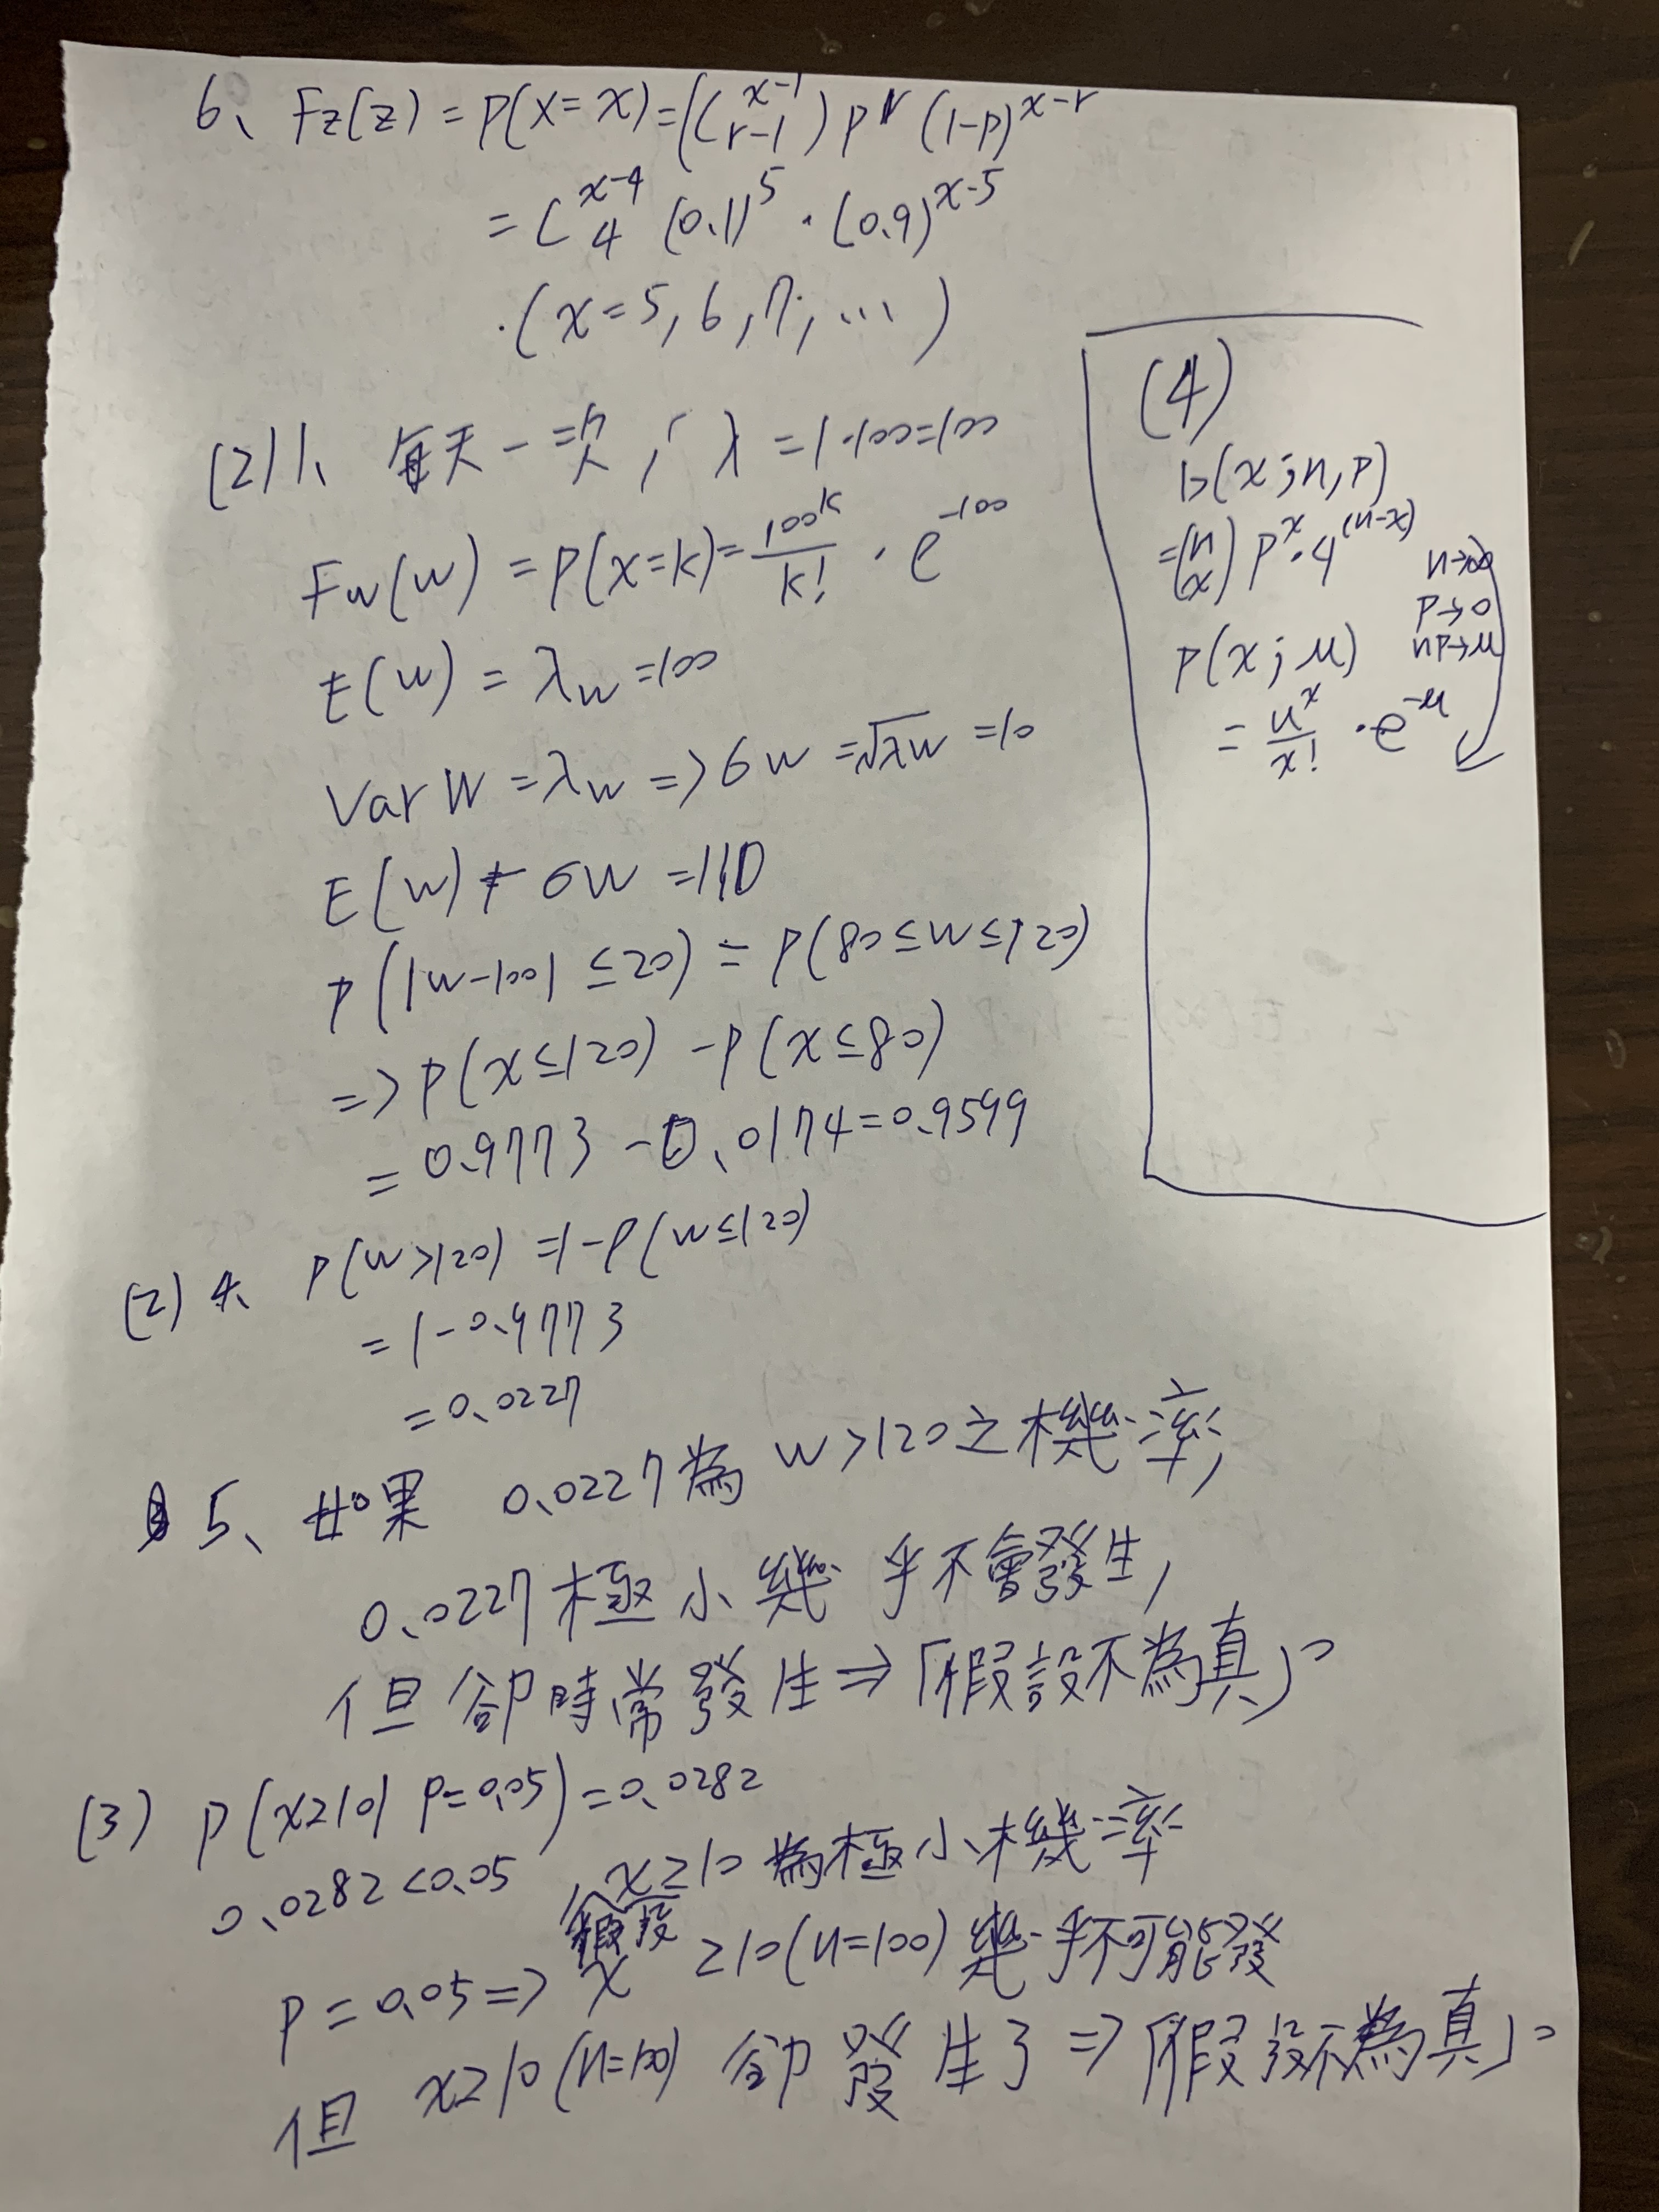 6、 Fz(z) = P(X=x) = (C^{x-1}_{r-1}) P^r (1-P)^{x-r}
= C^{x-4}_{4} (0.1)^5 · (0.9)^{x-5}
·(x=5,6,7,…)
(2)1、 每天一次, λ=1·100=100
Fw(w) = P(x=k) = 100^k/k! · e^{-100}
E(w) = λw =100
Var W = λw => σw = √λw =10
E(w) + σw =110
P(|w-100| ≤20) = P(80≤w≤120)
=> P(x≤120) -P(x≤80)
= 0.9773 -0.0174=0.9599
(2) 4、 P(w>120) =1-P(w≤120)
=1-0.9773
=0.0227
5、如果 0.0227為 w>120之機率,
0.0227極小幾乎不會發生,
但卻時常發生⇒「假設不為真」。
(3) P(x≥10| P=0.05)=0.0282
0.0282<0.05 , x≥10 為極小機率
假設
P=0.05=> x ≥10(n=100) 幾乎不可能發
但 x≥10(n=100) 卻發生了⇒「假設不為真」。
(4)
b(x;n,p)
=(n x) P^x·q^{(n-x)}
n→∞
P→0
nP→μ
P(x;μ)
= μ^x/x! ·e^{-μ}